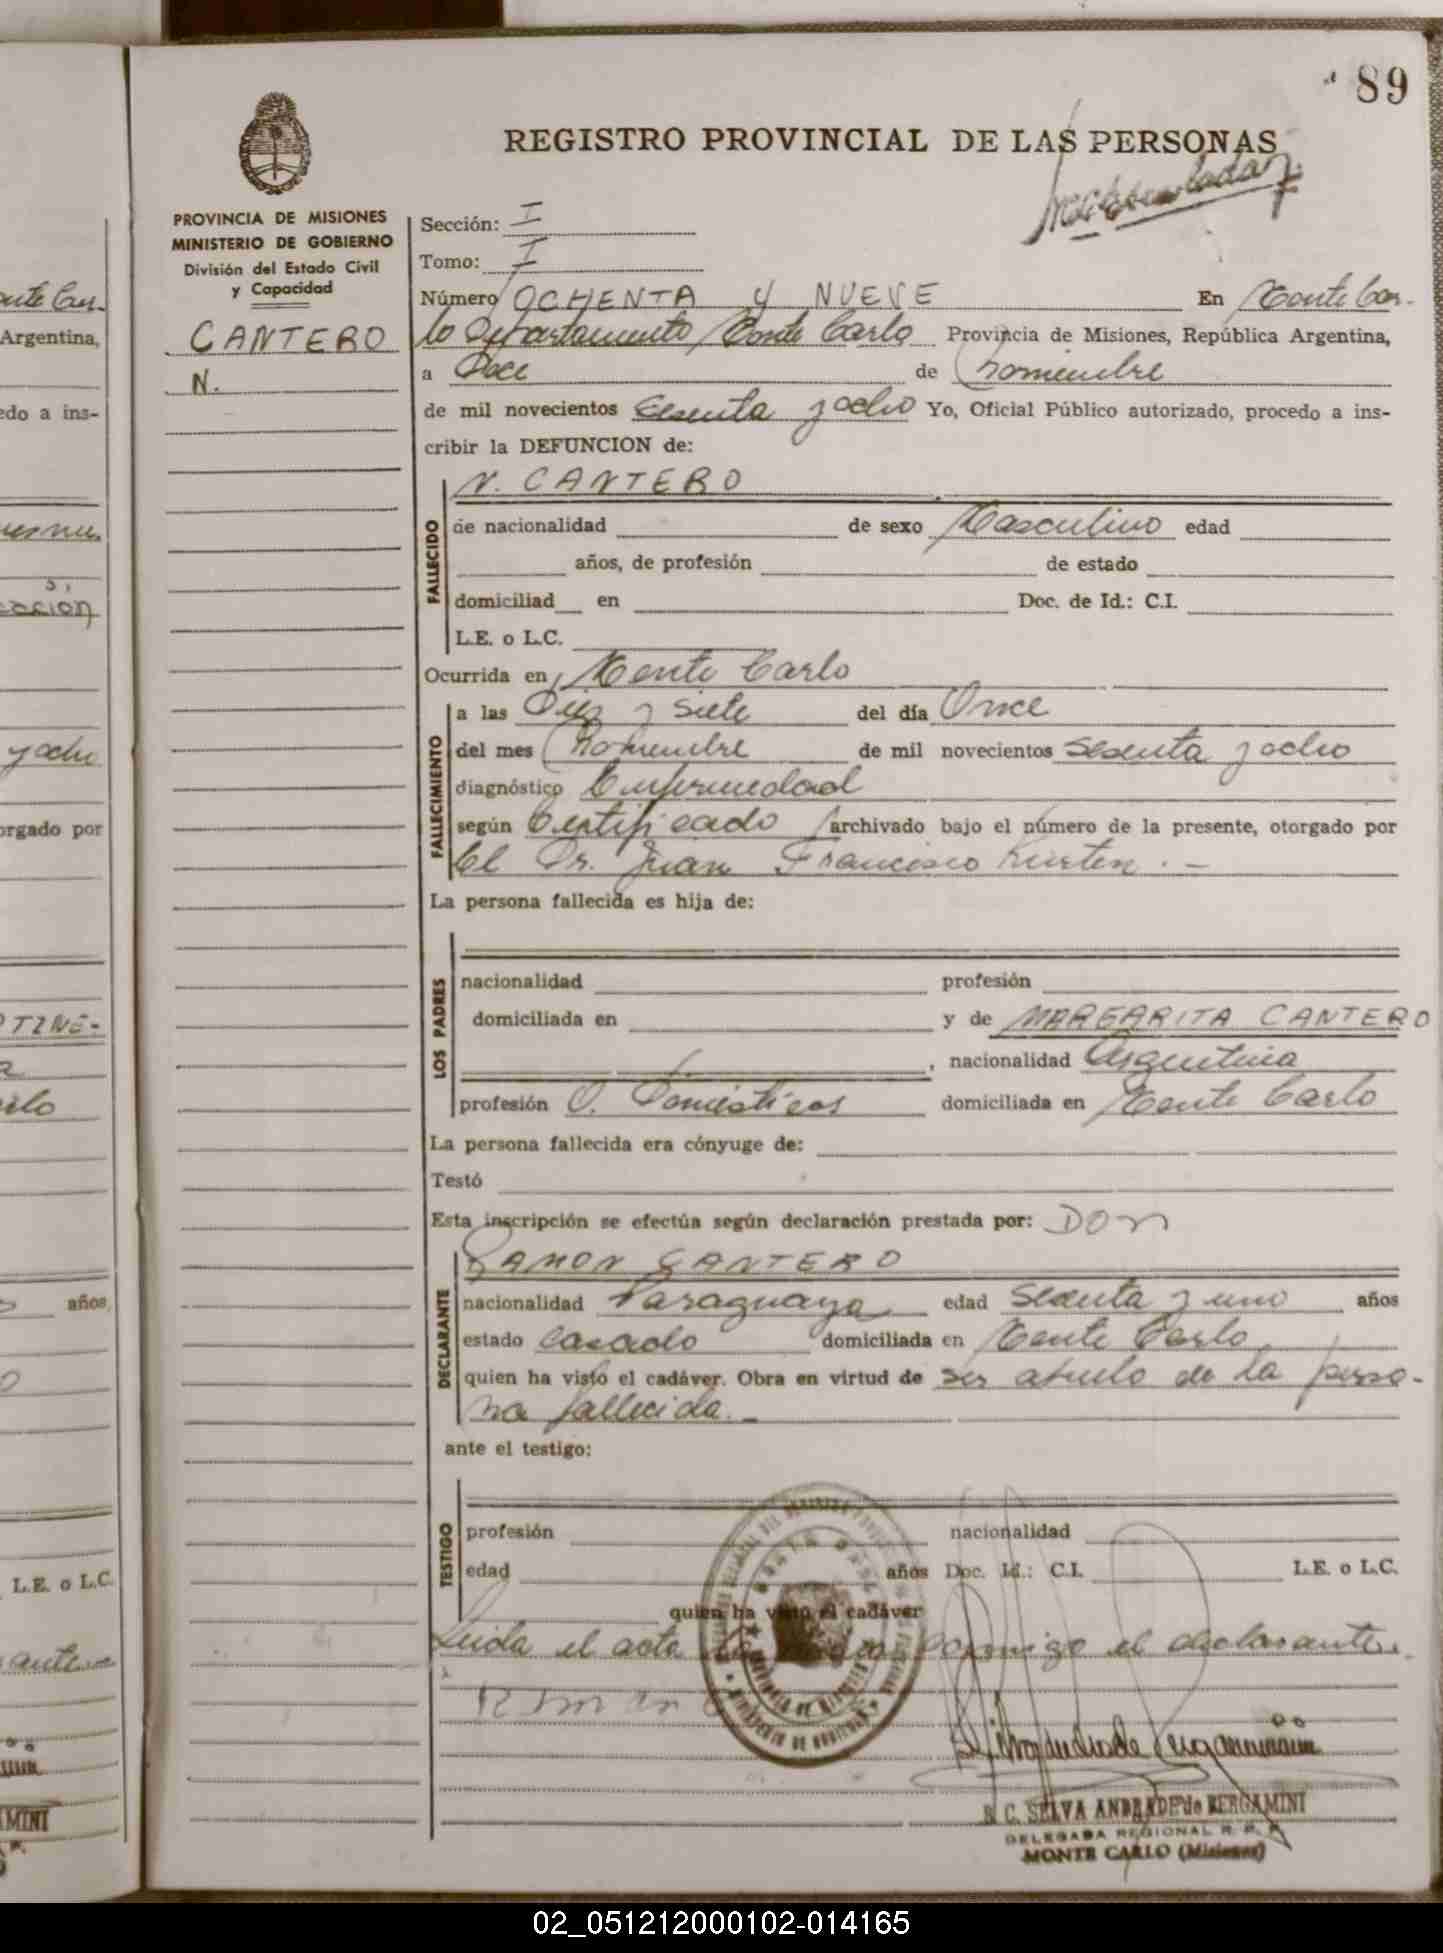 89
REGISTRO PROVINCIAL DE LAS PERSONAS
PROVINCIA DE MISIONES
MINISTERIO DE GOBIERNO
División del Estado Civil
y Capacidad
CANTERO
N.
Sección: I
Tomo: I
Número OCHENTA y NUEVE En Monte Car-
lo Departamento Monte Carlo Provincia de Misiones, República Argentina,
a Doce de Noviembre
de mil novecientos sesenta y ocho Yo, Oficial Público autorizado, procedo a ins-
cribir la DEFUNCION de:
N. CANTERO
FALLECIDO
de nacionalidad de sexo Masculino edad
años, de profesión de estado
domiciliad en Doc. de Id.: C.I.
L.E. o L.C.
Ocurrida en Monte Carlo
FALLECIMIENTO
a las Diez y siete del día Once
del mes Noviembre de mil novecientos sesenta y ocho
diagnóstico Enfermedad
según Certificado archivado bajo el número de la presente, otorgado por
El Dr. Juan Francisco .-
La persona fallecida es hija de:
LOS PADRES
nacionalidad profesión
domiciliada en y de MARGARITA CANTERO
, nacionalidad Argentina
profesión Q. Domésticos domiciliada en Monte Carlo
La persona fallecida era cónyuge de:
Testó
Esta inscripción se efectúa según declaración prestada por: DON
RAMON CANTERO
DECLARANTE
nacionalidad Paraguaya edad Sesenta y uno años
estado casado domiciliada en Monte Carlo
quien ha visto el cadáver. Obra en virtud de ser abuelo de la perso-
na fallecida.
ante el testigo:
TESTIGO
profesión nacionalidad
edad años Doc. Id.: C.I. L.E. o L.C.
quien ha visto el cadáver
Leida el acta conmigo el declarante.
S. C. SELVA ANDRADE de BERGAMINI
DELEGADA REGIONAL R. P. P.
MONTE CARLO (Misiones)
02_051212000102-014165